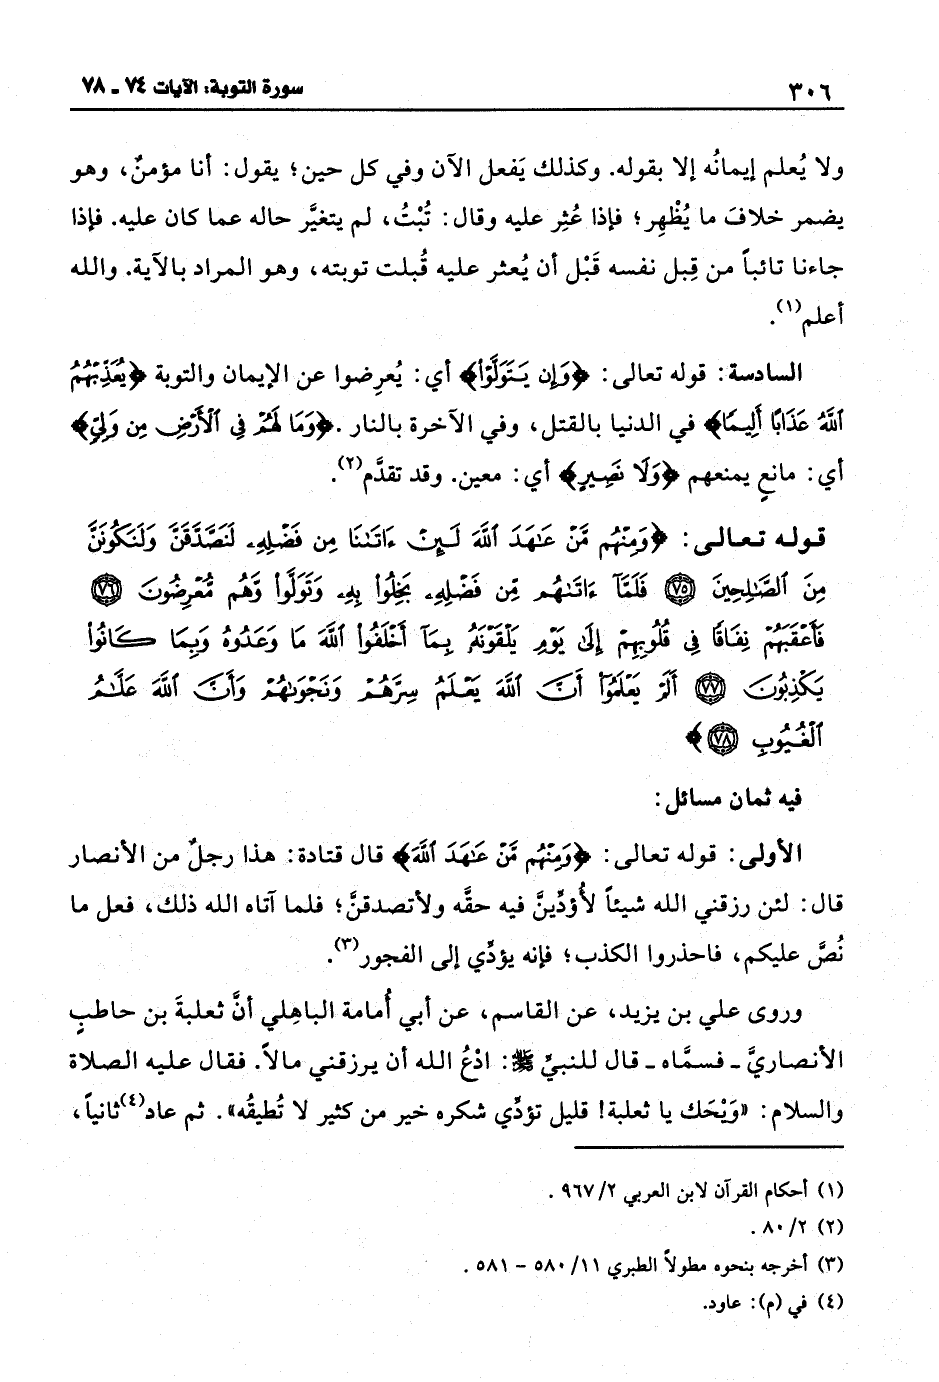 ٣٠٦ سورة التوبة: الآيات ٧٤ ـ ٧٨
ولا يُعلم إيمانُه إلا بقوله. وكذلك يَفعل الآن وفي كل حين؛ يقول: أنا مؤمنٌ، وهو
يضمر خلافَ ما يُظْهِر؛ فإذا عُثِر عليه وقال: تُبْتُ، لم يتغيَّر حاله عما كان عليه. فإذا
جاءنا تائباً من قِبل نفسه قَبْل أن يُعثر عليه قُبلت توبته، وهو المراد بالآية. والله
أعلم(١).
السادسة: قوله تعالى: ﴿وَإِن يَتَوَلَّوْا۟﴾ أي: يُعرِضوا عن الإيمان والتوبة ﴿يُعَذِّبْهُمُ
ٱللَّهُ عَذَابًا أَلِيمًا﴾ في الدنيا بالقتل، وفي الآخرة بالنار .﴿وَمَا لَهُمْ فِى ٱلْأَرْضِ مِن وَلِىٍّ﴾
أي: مانعٍ يمنعهم ﴿وَلَا نَصِيرٍ﴾ أي: معين. وقد تقدَّم(٢).
قوله تعالى: ﴿وَمِنْهُم مَّنْ عَٰهَدَ ٱللَّهَ لَئِنْ ءَاتَىٰنَا مِن فَضْلِهِۦ لَنَصَّدَّقَنَّ وَلَنَكُونَنَّ
مِنَ ٱلصَّٰلِحِينَ ٧٥ فَلَمَّآ ءَاتَىٰهُم مِّن فَضْلِهِۦ بَخِلُوا۟ بِهِۦ وَتَوَلَّوا۟ وَّهُم مُّعْرِضُونَ ٧٦
فَأَعْقَبَهُمْ نِفَاقًا فِى قُلُوبِهِمْ إِلَىٰ يَوْمِ يَلْقَوْنَهُۥ بِمَآ أَخْلَفُوا۟ ٱللَّهَ مَا وَعَدُوهُ وَبِمَا كَانُوا۟
يَكْذِبُونَ ٧٧ أَلَمْ يَعْلَمُوٓا۟ أَنَّ ٱللَّهَ يَعْلَمُ سِرَّهُمْ وَنَجْوَىٰهُمْ وَأَنَّ ٱللَّهَ عَلَّٰمُ
ٱلْغُيُوبِ ٧٨﴾
فيه ثمان مسائل:
الأولى: قوله تعالى: ﴿وَمِنْهُم مَّنْ عَٰهَدَ ٱللَّهَ﴾ قال قتادة: هذا رجلٌ من الأنصار
قال: لئن رزقني الله شيئاً لأُؤدِّينَّ فيه حقَّه ولأتصدقنَّ؛ فلما آتاه الله ذلك، فعل ما
نُصَّ عليكم، فاحذروا الكذب؛ فإنه يؤدِّي إلى الفجور(٣).
وروى علي بن يزيد، عن القاسم، عن أبي أُمامة الباهِلي أنَّ ثعلبةَ بن حاطبٍ
الأنصاريَّ ـ فسمَّاه ـ قال للنبيِّ ﷺ: ادْعُ الله أن يرزقني مالاً. فقال عليه الصلاة
والسلام: «وَيْحَك يا ثعلبة! قليل تؤدِّي شكره خير من كثير لا تُطيقُه». ثم عاد(٤)ثانياً،
(١) أحكام القرآن لابن العربي ٩٦٧/٢ .
(٢) ٨٠/٢ .
(٣) أخرجه بنحوه مطولاً الطبري ٥٨٠/١١ - ٥٨١ .
(٤) في (م): عاود.